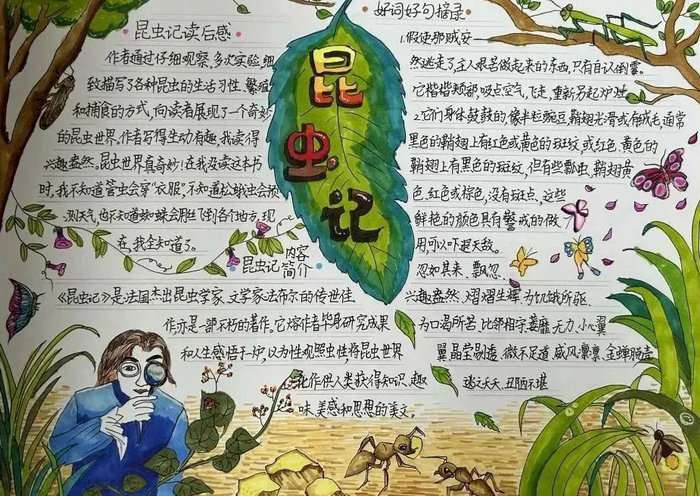 昆虫记
昆虫记读后感
作者通过仔细观察,多次实验,细
致描写了各种昆虫的生活习性,繁殖
和捕食的方式,向读者展现了一个奇妙
的昆虫世界,作者写得生动有趣,我读得
兴趣盎然。昆虫世界真奇妙!在我没读这本书
时,我不知道管虫会穿“衣服”,不知道松蛾虫会预
测天气,也不知道蜘蛛会用丝飞到各个地方,现
在,我全知道了。
昆虫记内容
简介
《昆虫记》是法国杰出昆虫学家,文学家法布尔的传世佳
作亦是一部不朽的著作,它熔作者毕身研究成果
和人生感悟于一炉,以为性观照虫性将昆虫世界
化作供人类获得知识,趣
味,美感和思想的美文。
好词好句摘录
1.假使那贼安
然逃走了,主人艰苦做起来的东西,只有自认倒霉。
它揩揩颊部,吸点空气,飞走,重新另起炉灶
2.它们身体鼓鼓的,像半粒豌豆,鞘翅光滑或有绒毛,通常
黑色的鞘翅上有红色或黄色的斑纹或红色,黄色的
鞘翅上有黑色的斑纹,但有些瓢虫,鞘翅黄
色,红色或棕色,没有斑点,这些
鲜艳的颜色具有警戒的做
用,可以吓退天敌。
忽如其来,飘忽
兴趣盎然,熠熠生辉,为饥饿所驱
为口渴所苦,比邻相守,萎靡无力,小心翼
翼,晶莹剔透,微不足道,威风凛凛,金蝉脱壳
逃之夭夭,丑陋不堪